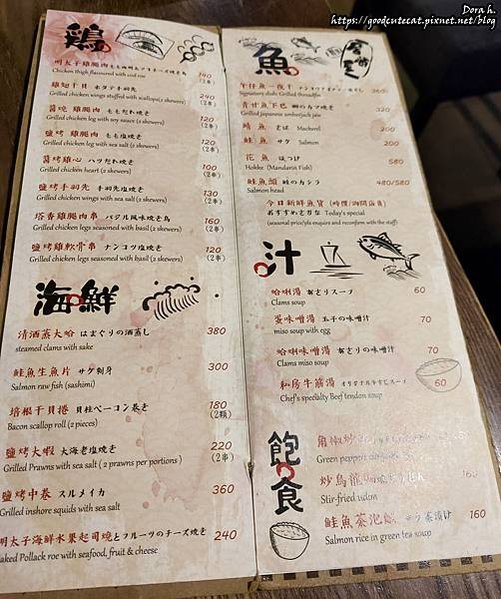 Dora h.
https://goodcutecat.pixnet.net/blog
鶏
Chicken thigh flavoured with cod roe
140
(2串)
Grilled chicken wings stuffed with scallop(2 skewers)
240
(2串)
醬燒 雞腿肉 ももだれ焼き
Grilled chicken leg with soy sauce (2 skewers)
120
(2串)
鹽烤 雞腿肉 もも塩焼き
Grilled chicken leg with sea salt (2 skewers)
120
(2串)
醬烤雞心 ハツだれ焼き
Grilled chicken heart (2 skewers)
100
(2串)
鹽烤手羽先 手羽先塩焼き
Grilled chicken wings with sea salt (2 skewers)
130
(2串)
塔香雞腿肉串 バジル風味焼き鳥
Grilled chicken legs seasoned with basil (2 skewers)
160
(2串)
鹽烤雞軟骨串 ナンコツ塩焼き
Grilled chicken legs seasoned with basil (2 skewers)
120
(2串)
海の鮮
清酒蒸大哈 はまぐりの酒蒸し
steamed clams with sake
380
鮭魚生魚片 サケ刺身
Salmon raw fish (sashimi)
300
培根干貝捲 貝柱ベーコン巻き
Bacon scallop roll (2 pieces)
180
(2顆)
鹽烤大蝦 大海老塩焼き
Grilled Prawns with sea salt ( 2 prawns per portions )
220
(2串)
鹽烤中卷 スルメイカ
Grilled inshore squids with sea salt
360
明太子海鮮水果起司燒とフルーツのチーズ焼き
aked Pollack roe with seafood, fruit & cheese
240
魚
午仔魚一夜干
Signature dish: Grilled threadfin
380
青甘魚下巴
Grilled japanese amberjack jaw
320
鯖魚 さば Mackerel
200
鮭魚 サケ Salmon
200
花魚 ほっけ
Hokke (Mandarin Fish)
580
鮭魚頭 鮭のカシラ
Salmon head
480/580
今日新鮮魚貨 (時價/詢問店員)
おすすめさかな Today's special
(seasonal price/pls enquire and reconfirm with the staff)
汁
哈唎湯
Clams soup
60
蛋味噌湯 玉子の味噌汁
miso soup with egg
70
哈唎味噌湯
Clams miso soup
70
私房牛筋湯 オリジナル牛すじスープ
Chef's specialty Beef tendon soup
60
飽の食
Green pepper
炒烏龍
Stir-fried udon
160
鮭魚茶泡飯
Salmon rice in green tea soup
160